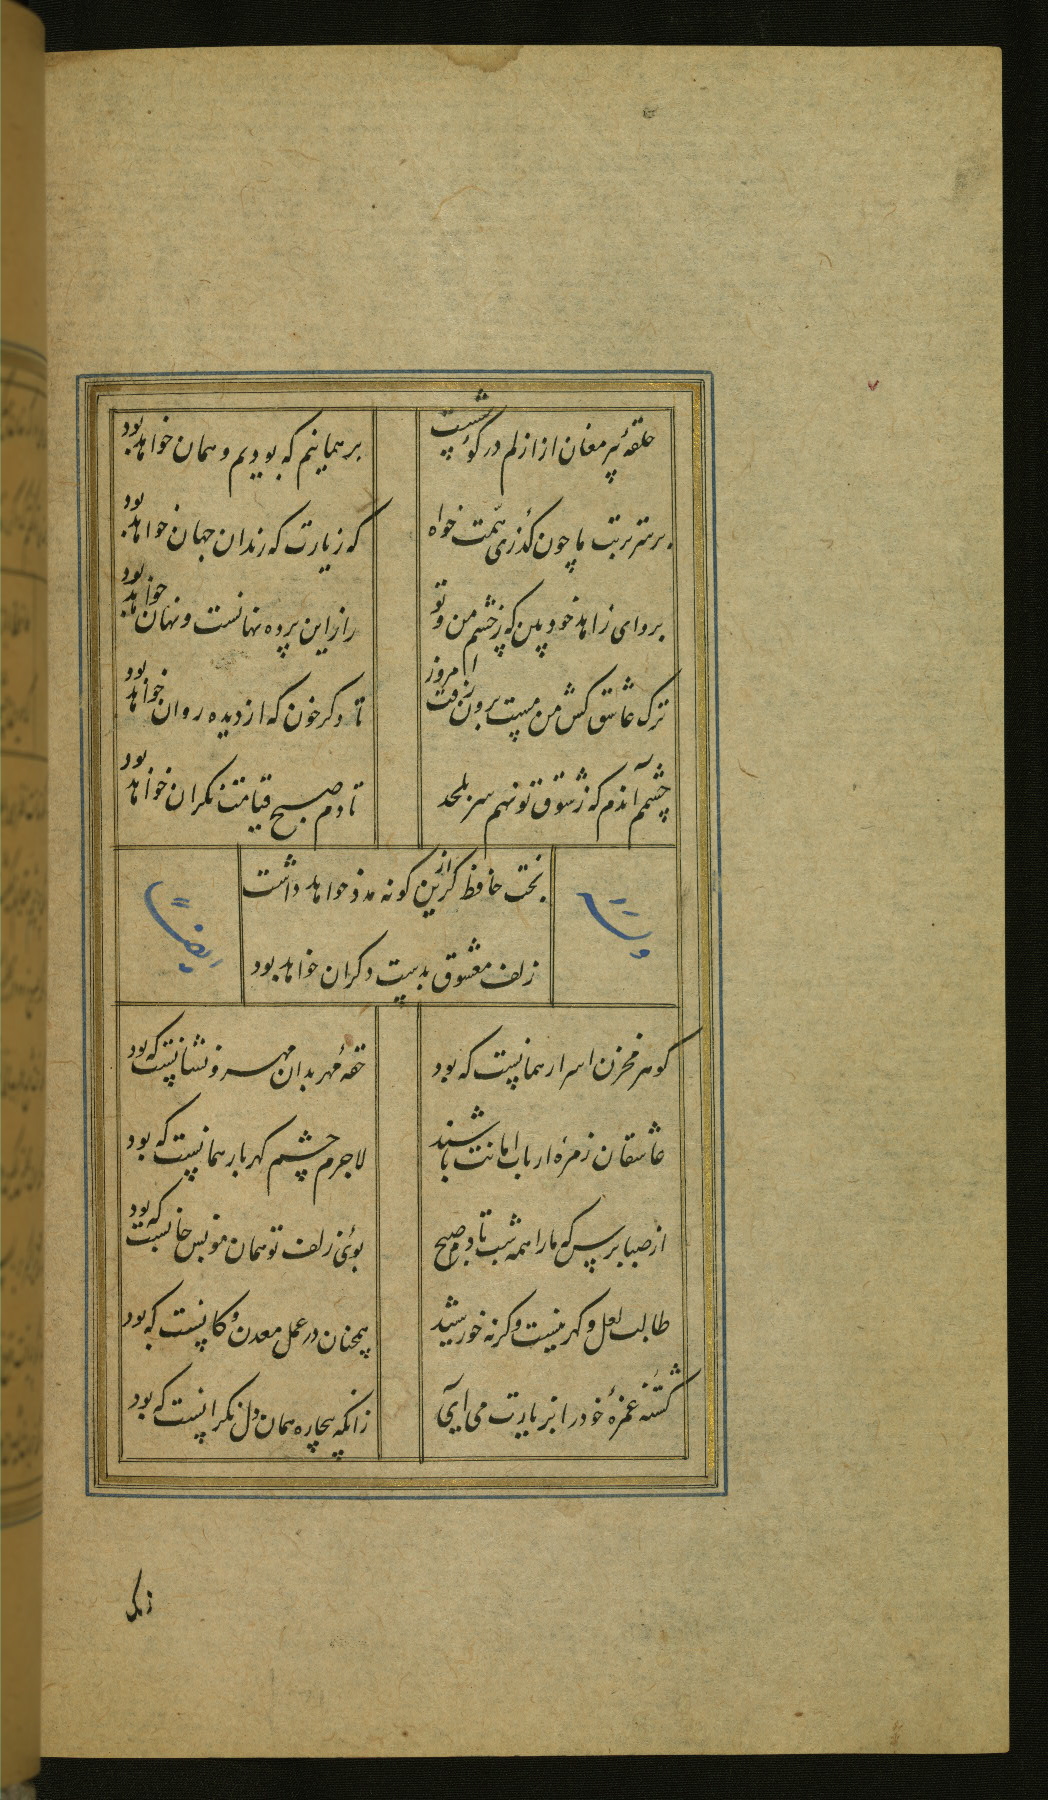 حلقهٔ پیر مغان از ازلم در گوشست
برهمانیم که بودیم و همان خواهد بود
بر سر تربت ما چون گذری همت خواه
که زیارت که رندان جهان خواهد بود
برو ای زاهد خودبین که ز چشم من و تو
راز این پرده نهانست و نهان خواهد بود
ترک عاشق کش من مست برون رفت امروز
تا دکر خون که از دیده روان خواهد بود
چشمم آندم که ز شوق تو نهم سر بلحد
تا دم صبح قیامت نکران خواهد بود
بخت حافظ کر ازین کونه مدد خواهد داشت
زلف معشوق بدست دکران خواهد بود
وله
ایضاً
کوهر مخزن اسرار همانست که بود
حقهٔ مهر بدان مهر و نشانست که بود
عاشقان زمرهٔ ارباب امانت باشند
لاجرم چشم کهربار همانست که بود
از صبا پرس که ما را همه شب تا دم صبح
بوئی زلف تو همان مونس جانست که بود
طالب لعل و کهر نیست و کرنه خورشید
همچنان در عمل معدن و کانست که بود
کشتهٔ غمزهٔ خود را بزیارت می آیی
زانکه بیچاره همان دل نکرانست که بود